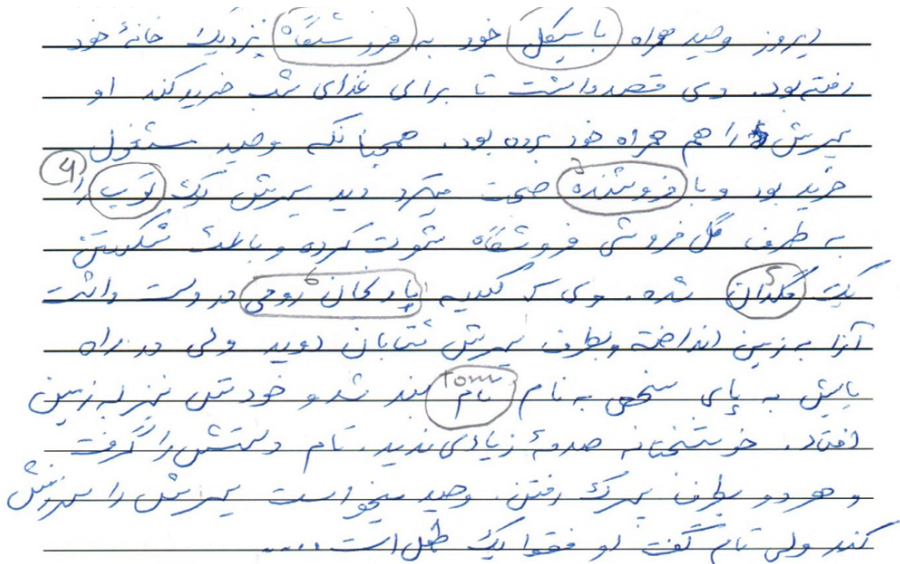 دیروز وحید همراه با سیکل خود به فروشگاه نزدیک خانهٔ خود
رفته بود. وی قصد داشت تا برای غذای شب خرید کند او
پسرش را هم همراه خود برده بود. همچنانکه وحید مشغول
خرید بود و با فروشنده صحبت میکرد دید پسرش یک توپ را
به طرف گل فروشی فروشگاه شوت کرده و باعث شکستن
یک گلدان شده. وی که کیسه بادنجان رومی در دست داشت
آنرا به زمین انداخته و بطرف پسرش شتابان دوید ولی در راه
پایش به پای شخصی به نام تام Tom بند شد و خودش نیز به زمین
افتاد. خوشبختانه صدمهٔ زیادی ندید. تام دستش را گرفت
و هر دو بطرف پسرک رفتن. وحید میخواست پسرش را سرزنش
کند ولی تام گفت او فقط یک طفل است....